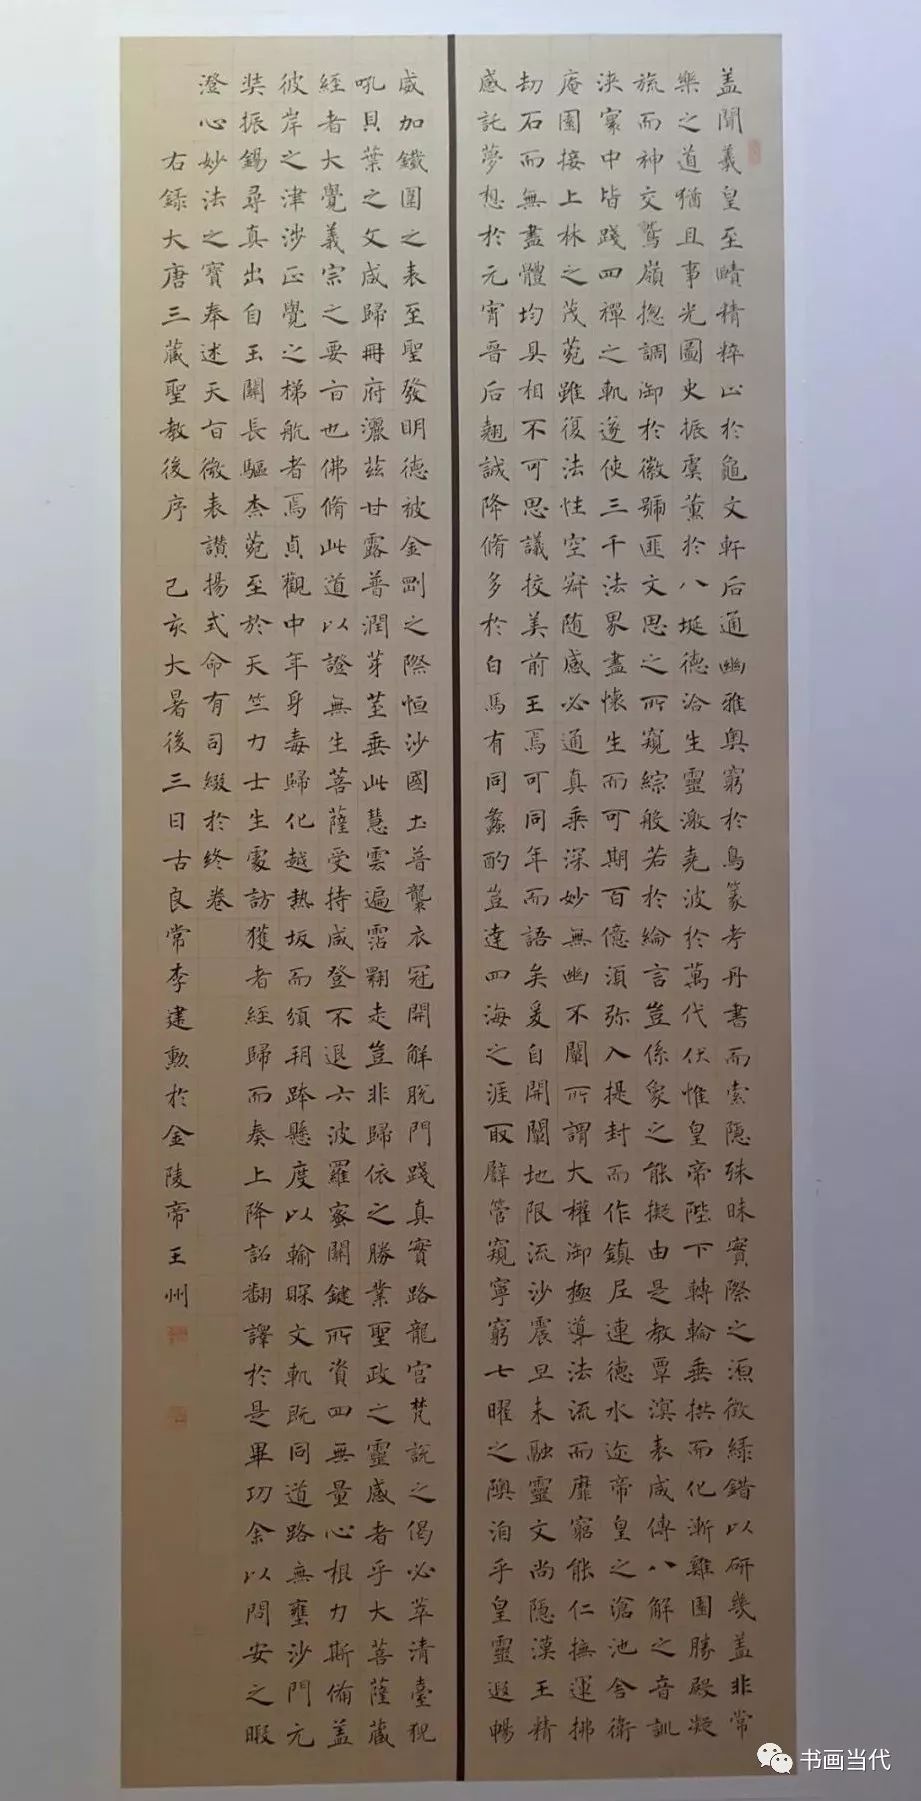 盖聞羲皇至賾精粹止於龜文軒后通幽雅奥窮於鳥篆考丹書而索隱殊昧實際之源徵綠錯以研幾盖非常
樂之道猶且事光圖史振虞薰於八埏德洽生靈激堯波於萬代伏惟皇帝陛下轉輪垂拱而化漸雞園勝殿凝
旒而神交鷲嶺揔調御於徽號匪文思之所窺綜般若於綸言豈係象之能擬由是教覃溟表咸傳八解之音訓
浹寰中皆踐四禪之軌遂使三千法界盡懷生而可期百億須弥入提封而作鎮尼連德水迩帝皇之滄池舍衛
庵園接上林之茂菀雖復法性空寂随感必通真乘深妙無幽不闡所謂大權御極導法流而靡窮能仁撫運拂
劫石而無盡體均具相不可思議挍美前王焉可同年而語矣爰自開闢地限流沙震旦未融靈文尚隱漢王精
感託夢想於元宵晋后翹誠降脩多於白馬有同蠡酌豈達四海之涯取辟管窺寧窮七曜之隩洎乎皇靈遐暢
威加鐵圍之表至聖發明德被金剛之際恒沙國土普襲衣冠開解脱門踐真實路龍宫梵説之偈必萃清臺猊
吼貝葉之文咸歸冊府灑兹甘露普潤芽莖垂此慧雲遍霑翾走豈非歸依之勝業聖政之靈感者乎大菩薩藏
經者大覺義宗之要旨也佛脩此道以證無生菩薩受持咸登不退六波羅蜜關鍵所資四無量心根力斯備盖
彼岸之津涉正覺之梯航者焉貞觀中年身毒歸化越熱坂而頒朔跨懸度以輸賝文軌既同道路無壅沙門元
奘振錫尋真出自玉關長驅柰菀至於天竺力士生處訪獲者經歸而奏上降詔翻譯於是畢功余以問安之暇
澄心妙法之寶奉述天旨微表讃揚式命有司綴於終卷
右録大唐三藏聖教後序　己亥大暑後三日古良常李建勲於金陵帝王州
书画当代